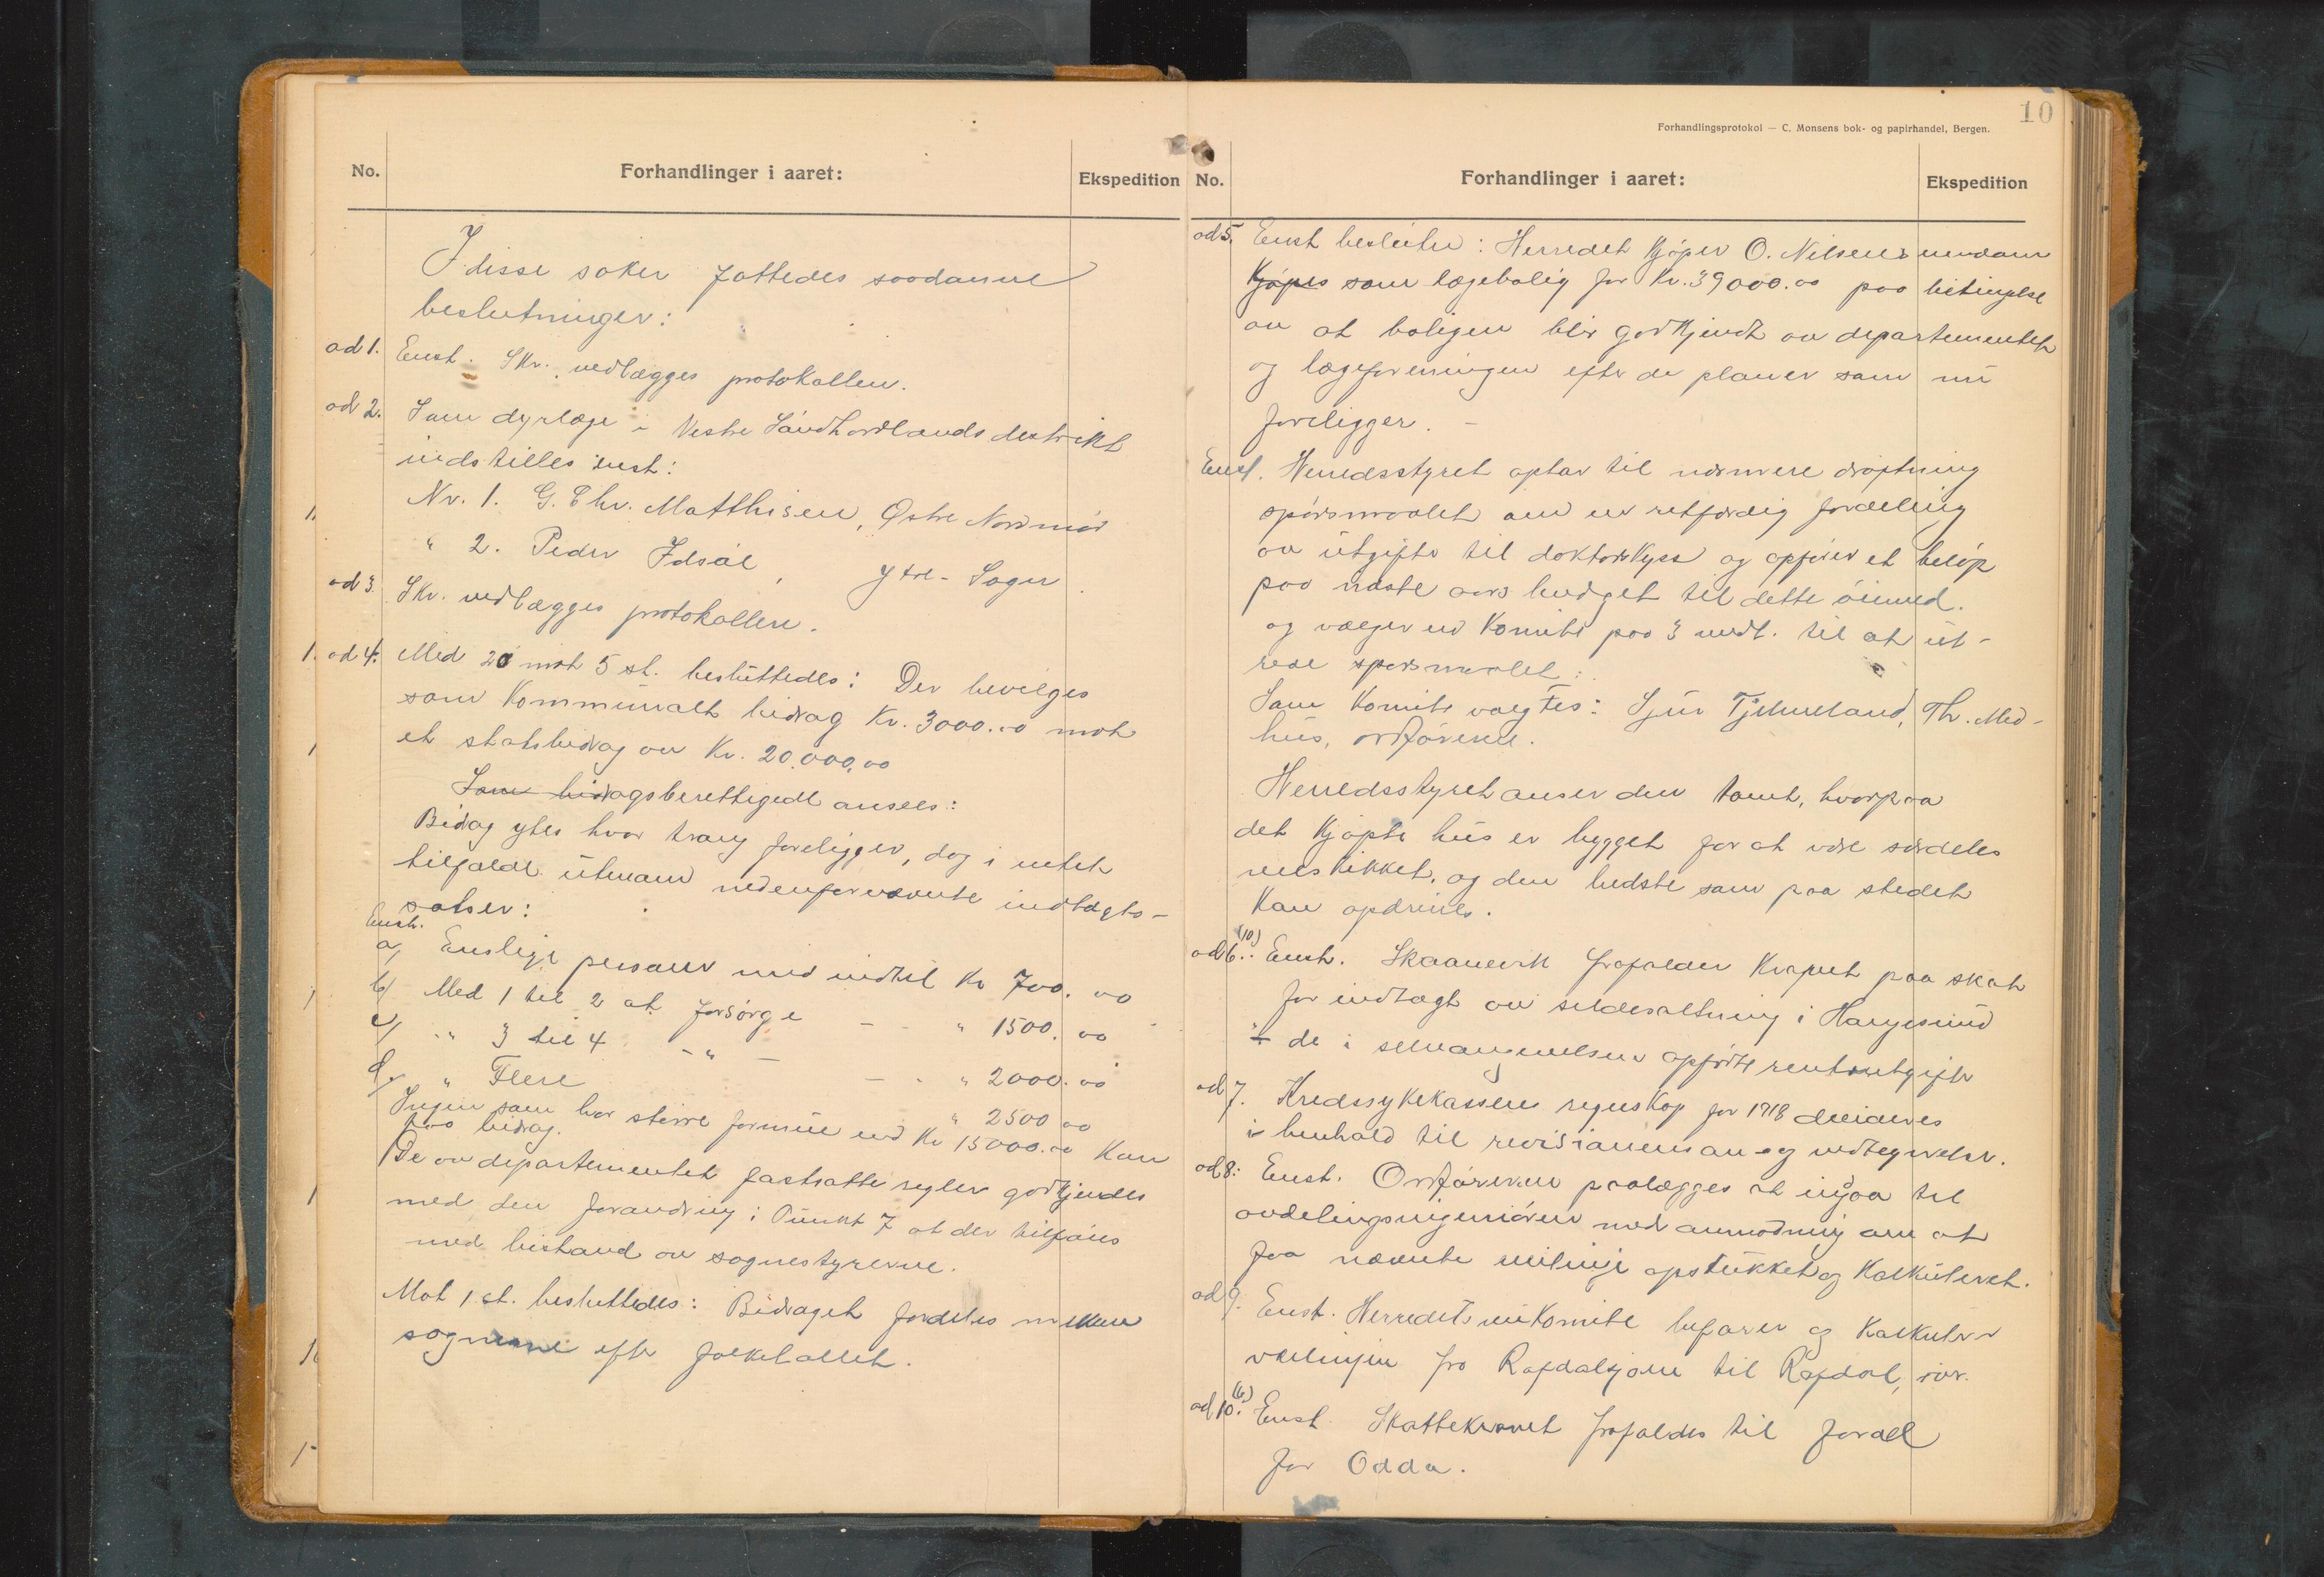 No.
Forhandlinger i aaret:
Ekspedition
I disse saker fattedes saadanne
beslutninger:
ad 1. Enst. Skr. vedlægges protokollen.
ad 2. Som dyrlæge i Vestre Søndhordlands destrikt
indstilles enst:
Nr. 1. G. Chr. Matthisen, Østre Nordmør
" 2. Peder Idsøe, Ytre-Sogn
ad 3. Skr. vedlægges protokollen.
ad 4. Med 20 mot 5 st. besluttedes: Der bevilges
som kommunalt bidrag Kr. 3000.00 mot
et statsbidrag av Kr. 20.000,00
Som bidragsberettigede ansees:
Bidrag ytes hvor trang foreligger, dog i intet
tilfælde utenom nedenfornævnte indtægts-
satser:
Enst.
a, Enslige personer med indtil Kr 700.00
b/ Med 1 til 2 at forsørge - - " 1500.00
c/ " 3 til 4 - " - - " 2000.00
d/ " Flere " 2500 00
Ingen som har større formue end Kr 15000.00 kan
faa bidrag.
De av departementet fastsatte regler godkjendes
med den forandring i Punkt 7 at der tilføies
med bistand av sognestyrerne.
Mot 1 st. besluttedes: Bidraget fordeles mellem
sognene efter folketallet.
10
Forhandlingsprotokol — C. Monsens bok- og papirhandel, Bergen.
No.
Forhandlinger i aaret:
Ekspedition
ad 5. Enst beslutn: Herredet kjøper O. Nilsens eiendom
kjøpes som lægebolig for Kr. 39000.00 paa betingelse
av at boligen blir godkjendt av departementet
og lægeforeningen efter de planer som nu
foreligger. -
Enst. Herredsstyret optar til nærmere drøftning
spørsmaalet om en retfærdig fordeling
av utgifter til doktorskyss og opfører et beløp
paa næste aars budget til dette øiemed.
og vælger en komite paa 3 medl. til at ut-
rede spørsmaalet:
Som komite valgtes: Sjur Tjelmeland, Th. Med-
hus, ordføreren.
Herredsstyret anser den tomt, hvorpaa
det kjøpte hus er bygget for at være særdeles
velskikket, og den bedste som paa stedet
kan opdrives.
ad 6. (10) Enst. Skaanevik frafalder kravet paa skat
for indtægt av sildesaltning i Haugesund
de i selvangivelsen opførte renteutgifter
ad 7. Kredssykekassens regnskap for 1918 decideres
i henhold til revisionens antegnelser.
ad 8: Enst. Ordføreren paalægges at indgaa til
avdelingsingeniøren med anmodning om at
faa nævnte veilinje opstukket og kalkulert.
ad 9. Enst. Herredets veikomite befarer og kalkulerer
veilinjen fra Rafdalsjøen til Rafdal,
ad 10. (6) Enst Skattekravet frafaldes til fordel
for Odda.